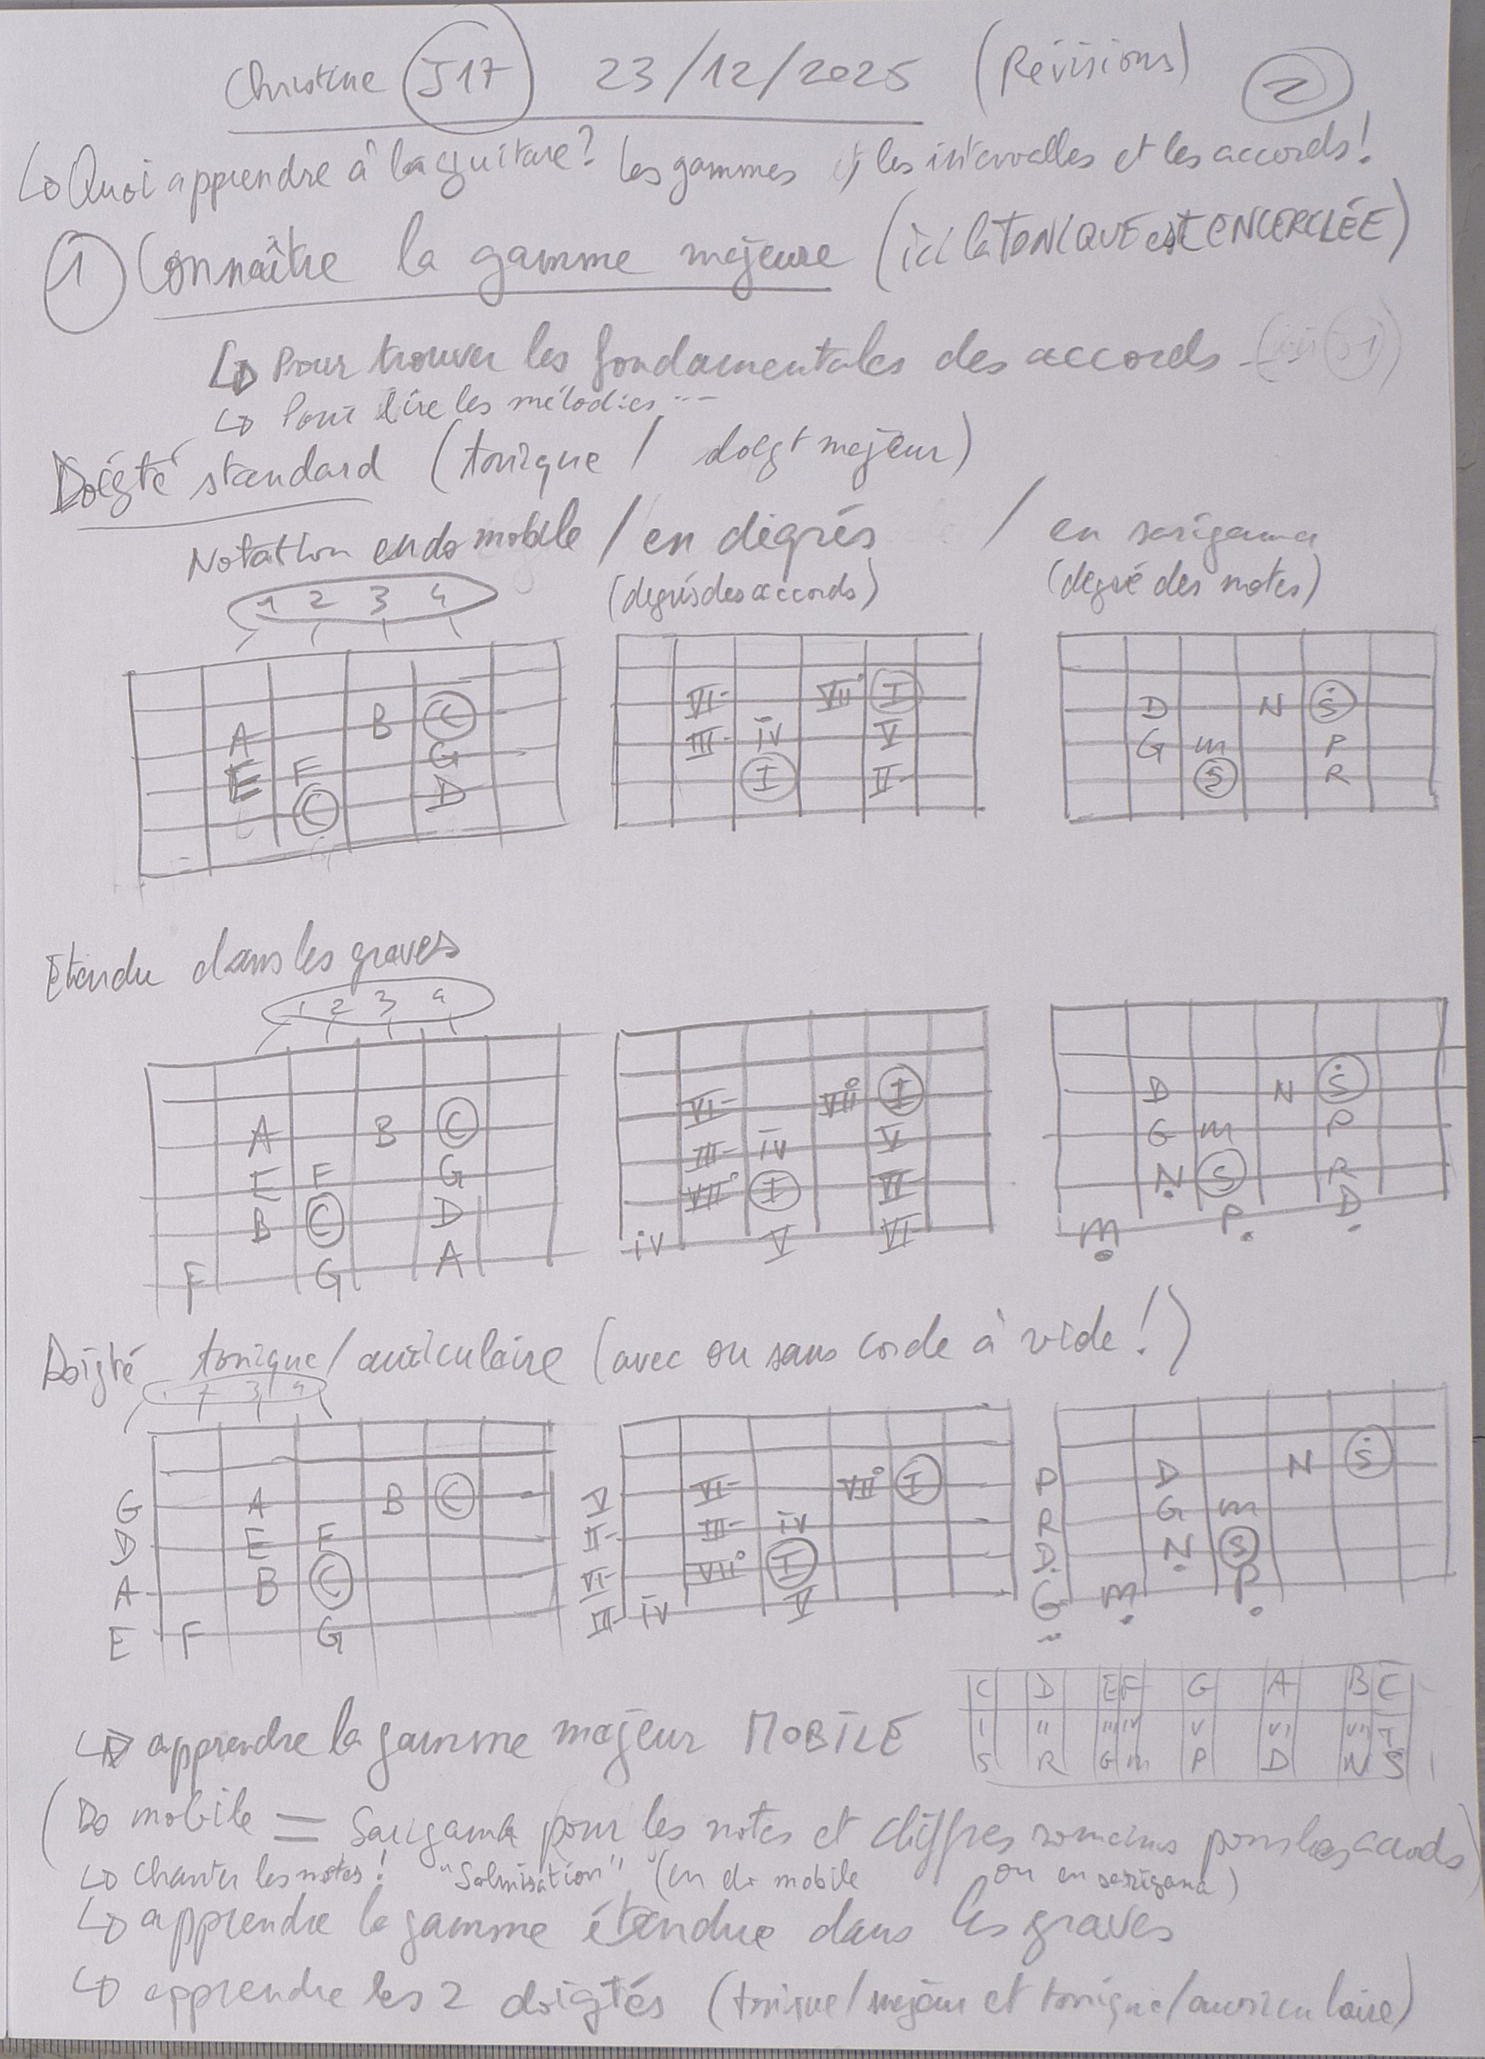 Christine J17 23/12/2025 (Révisions) 2
↳ Quoi apprendre à la guitare? les gammes, les intervalles et les accords!
1 Connaître la gamme majeure (ici la TONIQUE est ENCERCLÉE)
↳ Pour trouver les fondamentales des accords (voir J1)
↳ Pour lire les mélodies...
Doigté standard (tonique / doigt majeur)
Notation en do mobile / en degrés / en sarigama
(degrés des accords) (degré des notes)
1 2 3 4
A B C VI- VII° I D N Ṡ
E F G III- iv V G m P
C D I II- S R
Etendu dans les graves
1 2 3 4
A B C VI- VII° I D N Ṡ
E F G III- iv V G m P
B C D VII° I VI- Ṇ S R
F G A iv V VI- ṃ P̣ Ḍ
Doigté tonique/auriculaire (avec ou sans corde à vide!)
1 2 3 4
G A B C V VI- VII° I P D N Ṡ
D E F II- III- iv R G m
A B C VI- VII° I Ḍ Ṇ S
E F G III- iv V G̣ ṃ P̣
C D E F G A B C
I II III IV V VI VII I
S R G m P D N Ṡ
↳ apprendre la gamme majeur MOBILE
(Do mobile = Sarigama pour les notes et chiffres romains pour les accords)
↳ Chanter les notes! "Solmisation" (en do mobile ou en sarigama)
↳ apprendre la gamme étendue dans les graves
↳ apprendre les 2 doigtés (tonique/majeur et tonique/auriculaire)